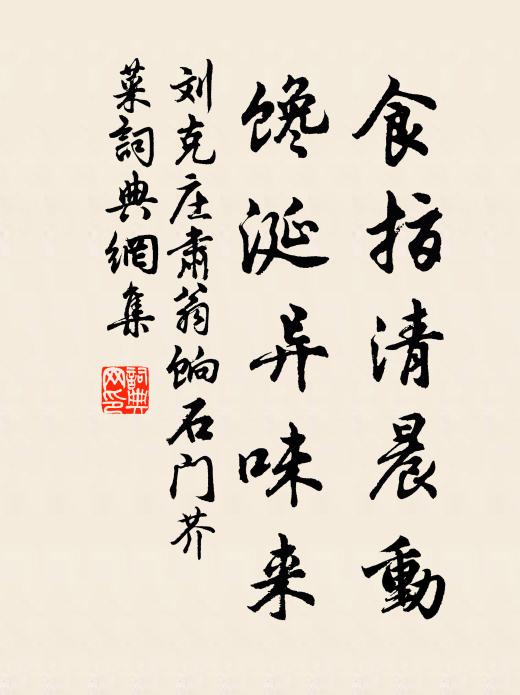 食指清晨動
馋涎异味来
刘克庄肅翁餉石门芥
菜詞典網集
詞典网印